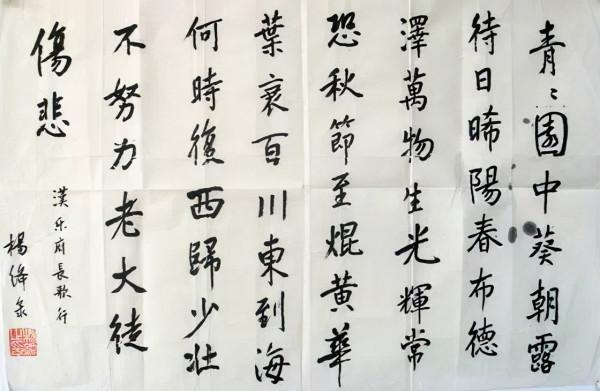 青〻園中葵朝露
待日晞陽春布德
澤萬物生光輝常
恐秋節至焜黄華
葉衰百川東到海
何時復西歸少壯
不努力老大徒
傷悲
漢乐府長歌行
楊絳錄